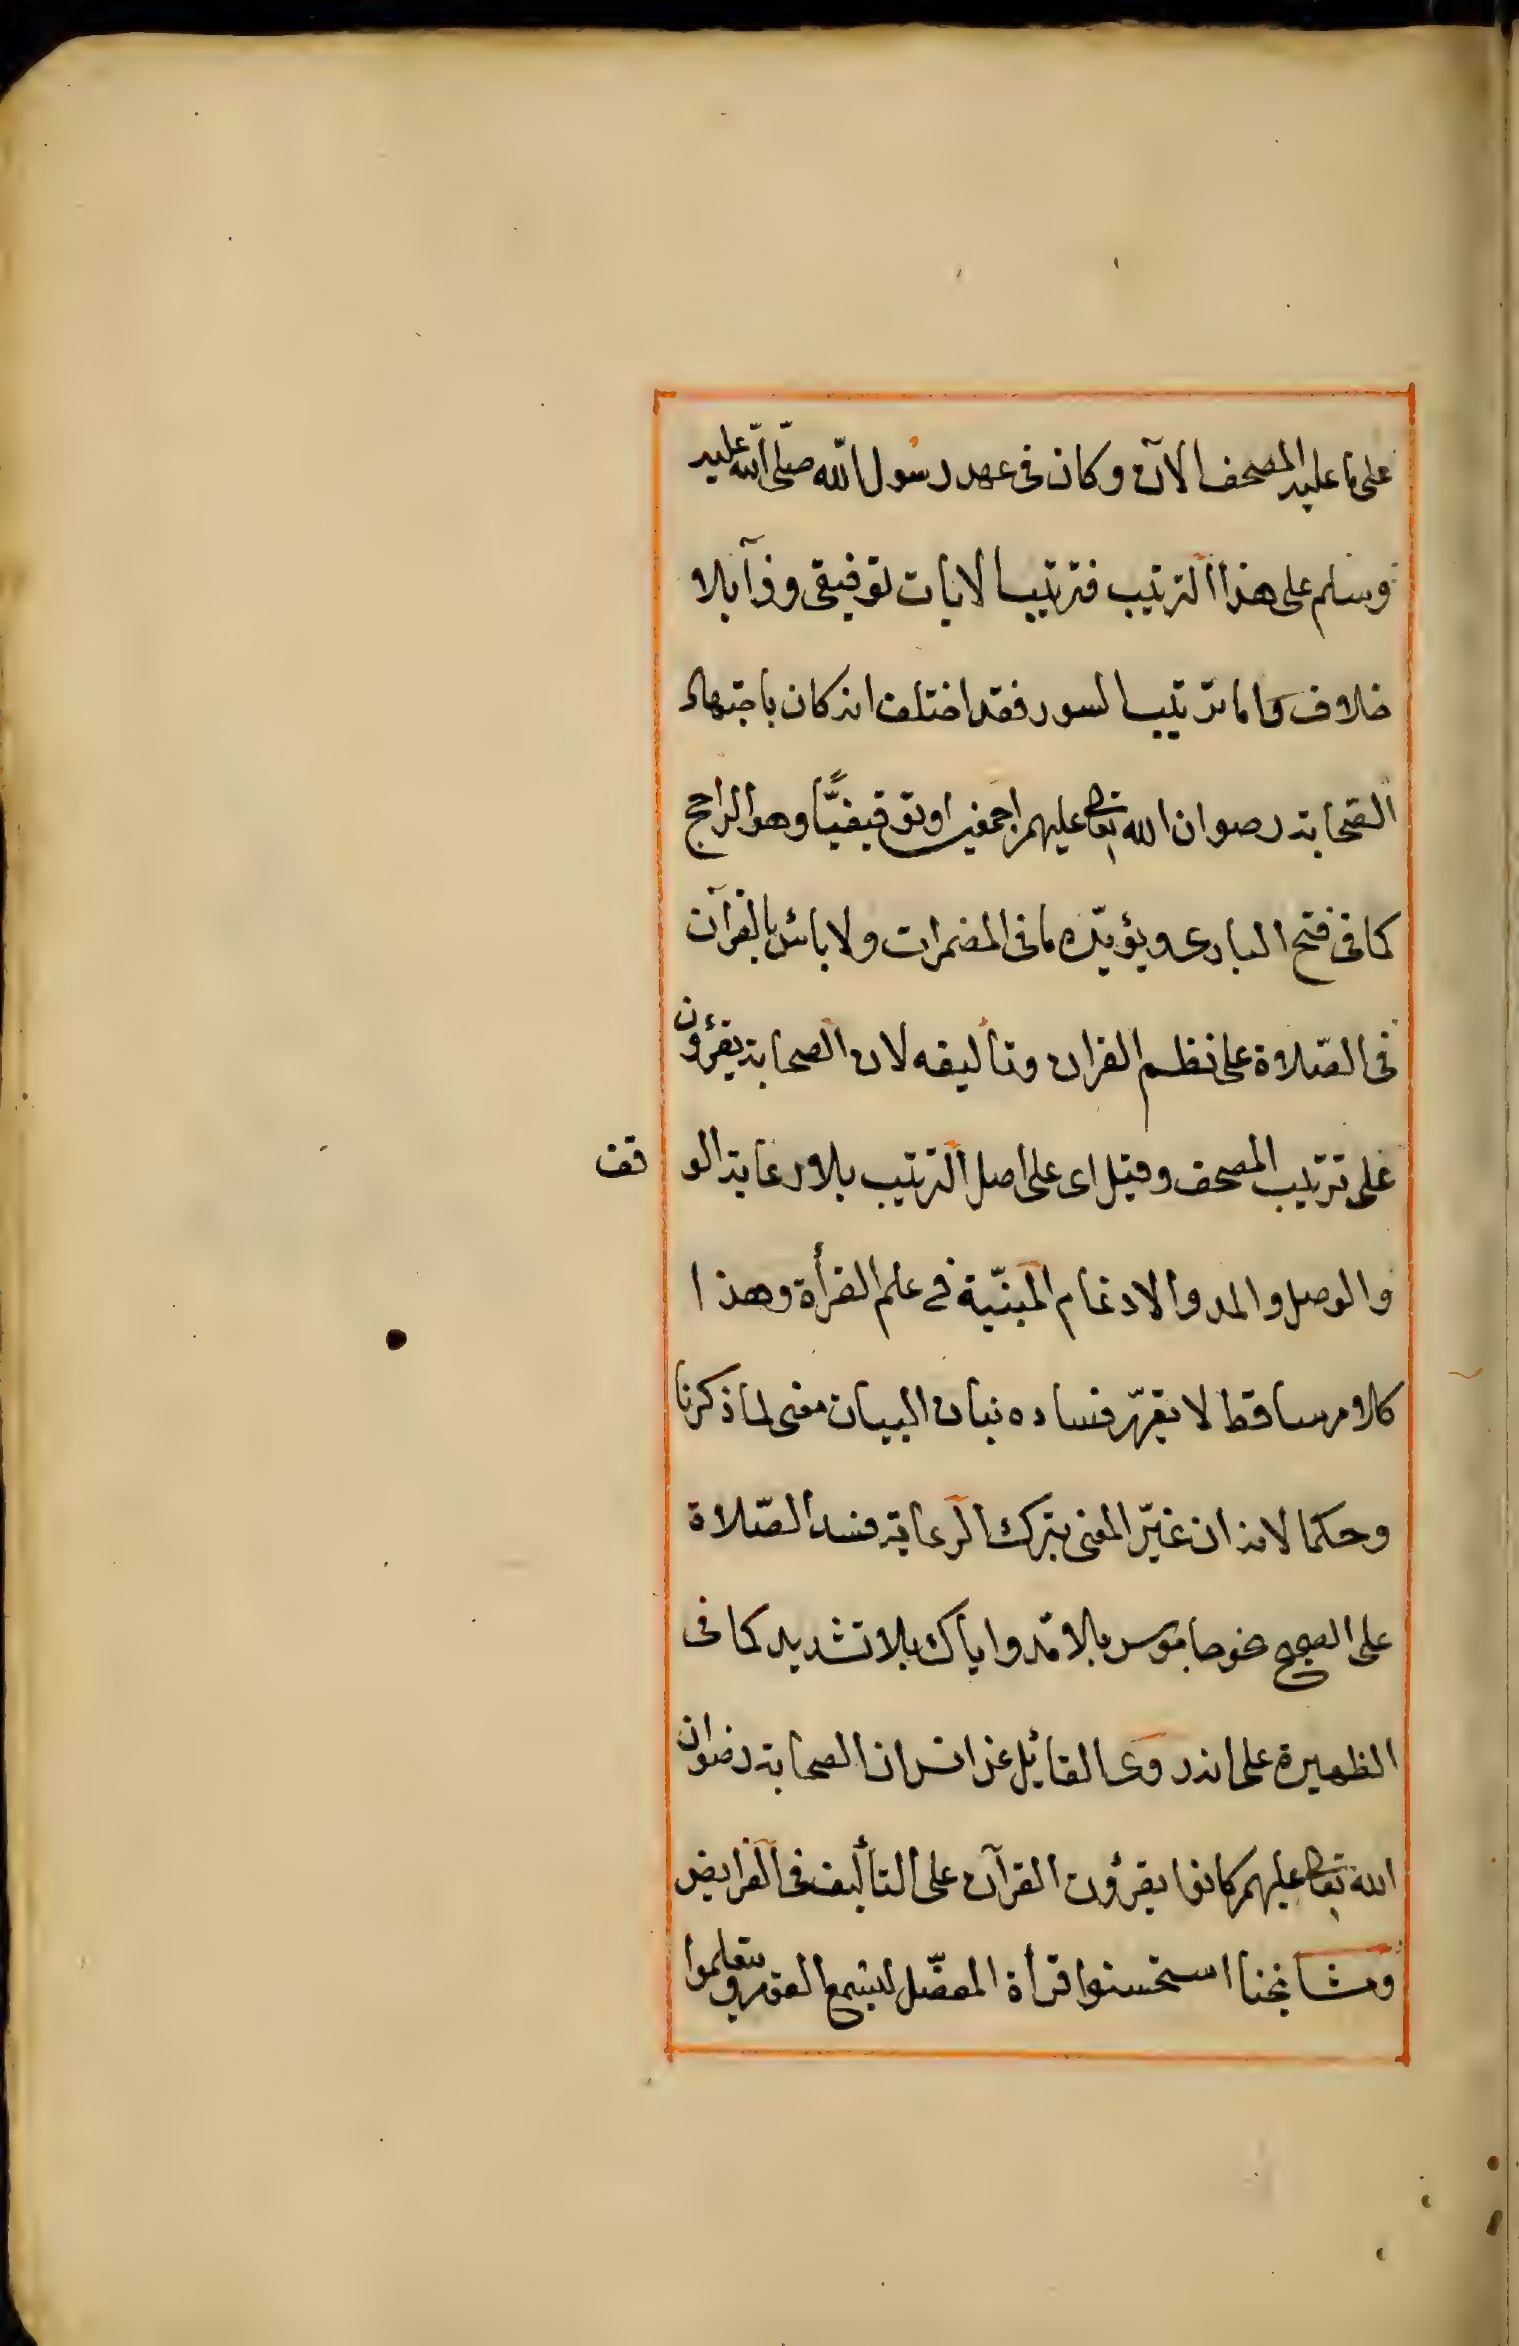 على ما عليه المصحف الآن وكان فى عهد رسول الله صلّى الله عليه
وسلم على هذا الترتيب فترتيب الايات توفيقى وذآ بلا
خلاف واما ترتيب السور فقد اختلف انه كان باجتهاد
الصحابة رضوان الله تعالى عليهم اجمعين او توقيفيًّا وهو الراجح
كما فى فتح البارى ويؤيّده ما فى المضمرات ولا باس بالقرآن
فى الصّلاة على نظم القران وتأليفه لان الصحابة يقرؤن
على ترتيب المصحف وقيل اى على اصل الترتيب بلا رعاية الو قف
والوصل والمد والادغام المبنيّة فى علم القرأة وهذا
كلام ساقط لا يقرّر فساده ببيان البيان معنى لما ذكرنا
وحكما لانه ان غيّر المعنى بترك الرعاية فسد الصّلاة
على الصحيح نحو جاموس بلا مد واياك بلا تشديد كما فى
الظهيرة على انه روى القائل عن انس ان الصحابة رضوان
الله تعالى عليهم كانوا يقرؤن القرآن على التأليف فى الفرايض
ومشايخنا استحسنوا قرأة المفصّل ليستمع القوم ويتعلموا